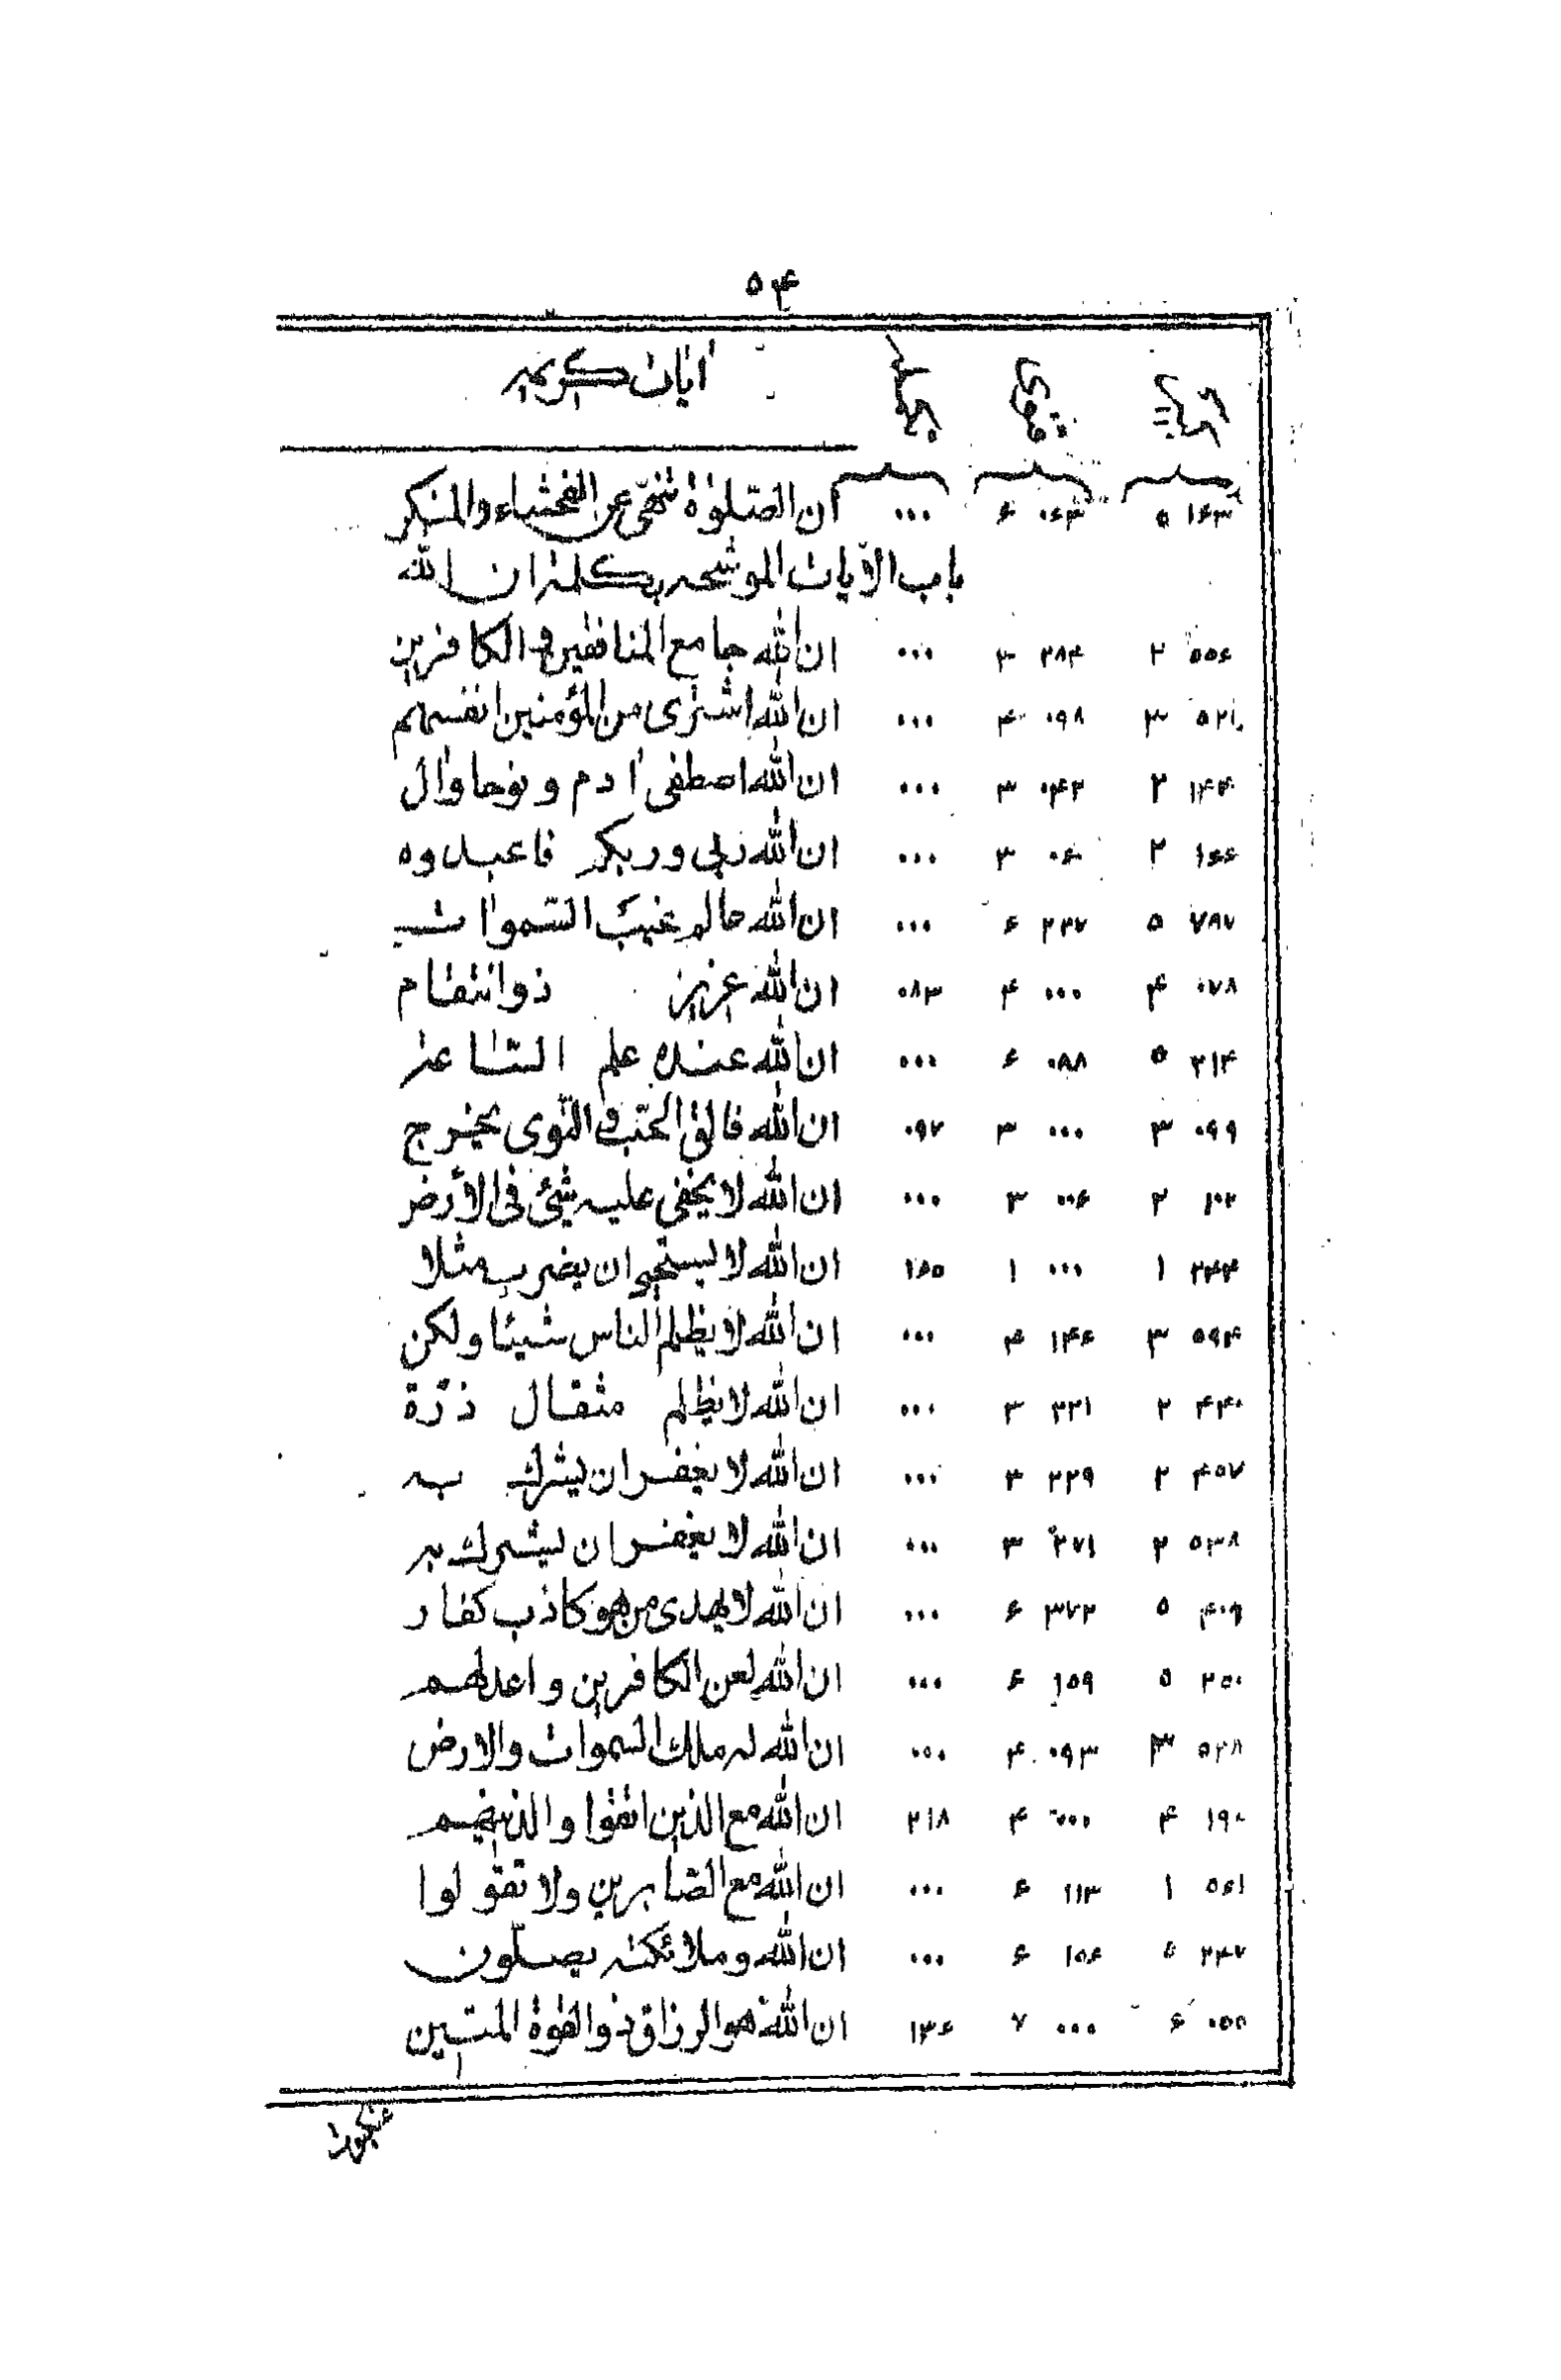 ۵۴
اٰیات کریمه
۱۶۳ ۵ ۰۶۴ ۶ ۰۰۰ ان الصّلوٰة تنهٰی عن الفحشاء و المنکر
باب الاٰیات الموشحه بکلمة ان الله
۵۵۶ ۲ ۲۸۴ ۳ ۰۰۰ ان الله جامع المنافقین و الکافرین
۵۲۱ ۳ ۰۹۸ ۴ ۰۰۰ ان الله اشترٰی من المؤمنین انفسهم
۱۴۴ ۲ ۰۴۲ ۳ ۰۰۰ ان الله اصطفی اٰدم و نوحا و اٰل
۱۶۶ ۲ ۰۶۰ ۳ ۰۰۰ ان الله ربی و ربکم فاعبدوه
۷۸۷ ۵ ۲۳۷ ۶ ۰۰۰ ان الله عالم غیب السّموات
۰۷۸ ۴ ۰۰۰ ۴ ۰۸۳ ان الله عزیز ذو انتقام
۲۱۴ ۵ ۰۸۸ ۶ ۰۰۰ ان الله عنده علم السّاعة
۰۹۹ ۳ ۰۰۰ ۳ ۰۹۷ ان الله فالق الحبّ و النّوی یخرج
۱۰۲ ۲ ۰۰۶ ۳ ۰۰۰ ان الله لا یخفی علیه شیئ فی الأرض
۲۴۴ ۱ ۰۰۰ ۱ ۱۶۵ ان الله لا یستحیی ان یضرب مثلا
۵۹۴ ۳ ۱۴۶ ۴ ۰۰۰ ان الله لا یظلم الناس شیئا و لکن
۴۴۰ ۲ ۲۲۱ ۳ ۰۰۰ ان الله لا یظلم مثقال ذرّة
۴۵۷ ۲ ۲۲۹ ۳ ۰۰۰ ان الله لا یغفر ان یشرك به
۵۳۸ ۲ ۲۷۱ ۳ ۰۰۰ ان الله لا یغفر ان یشرك به
۴۰۹ ۵ ۳۷۲ ۶ ۰۰۰ ان الله لا یهدی من هو کاذب کفار
۲۵۰ ۵ ۱۵۹ ۶ ۰۰۰ ان الله لعن الکافرین و اعد لهم
۵۲۸ ۳ ۰۹۳ ۴ ۰۰۰ ان الله له ملك السموات و الارض
۱۹۰ ۴ ۰۰۰ ۴ ۲۱۸ ان الله مع الذین اتقوا و الذین هم
۵۶۱ ۱ ۱۱۳ ۶ ۰۰۰ ان الله مع الصّابرین و لا تقولوا
۲۴۷ ۵ ۱۵۶ ۶ ۰۰۰ ان الله و ملائکته یصلّون
۰۵۵ ۶ ۰۰۰ ۷ ۱۳۶ ان الله هو الرزاق ذو القوة المتین